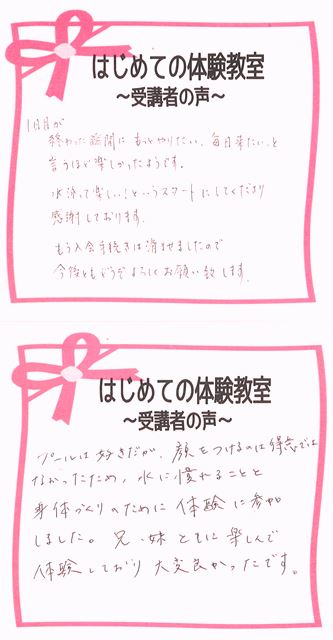 はじめての体験教室
～受講者の声～
1日目が
終わった瞬間に もっとやりたい、毎日来たい、と
言うほど楽しかったようです。
水泳って楽しい！というスタートにしてくださり
感謝しております。
もう入会手続きは済ませましたので
今後ともどうぞよろしくお願い致します。
はじめての体験教室
～受講者の声～
プールは好きだが、顔をつけるのは得意では
なかったため、水に慣れることと
身体づくりのために体験に参加
しました。兄、妹ともに楽しんで
体験しており大変良かったです。